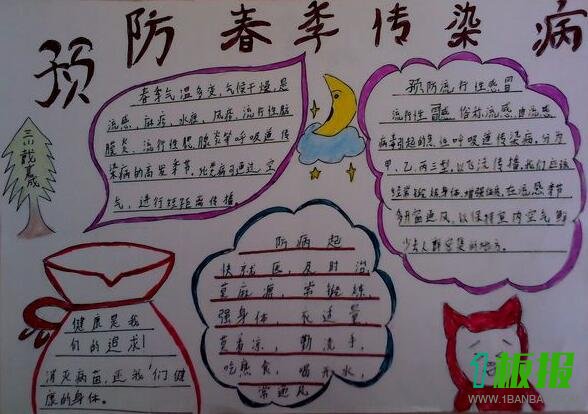 预防春季传染病
春季气温多变，气候干燥，是
流感、麻疹、水痘、风疹、流行性脑
膜炎、流行性腮腺炎等呼吸道传
染病的高发季节，此类病可通过空
气，进行短距离传播。
预防流行性感冒
流行性感冒俗称流感，由流感
病毒引起的急性呼吸道传染病，分为
甲、乙、丙三型，以飞沫传播，我们应该
经常锻炼身体，增强体质，在流感季节
多开窗通风，以保持室内空气新
少去人群密集的地方。
防病起
快就医，及时治
莫麻痹，常锻炼，
强身体，衣适量
莫着凉，勤洗手，
吃熟食，喝开水，
常通风
健康是我
们的追求！
消灭病苗，还我们健
康的身体。
板报
WWW.1BANBAO.COM